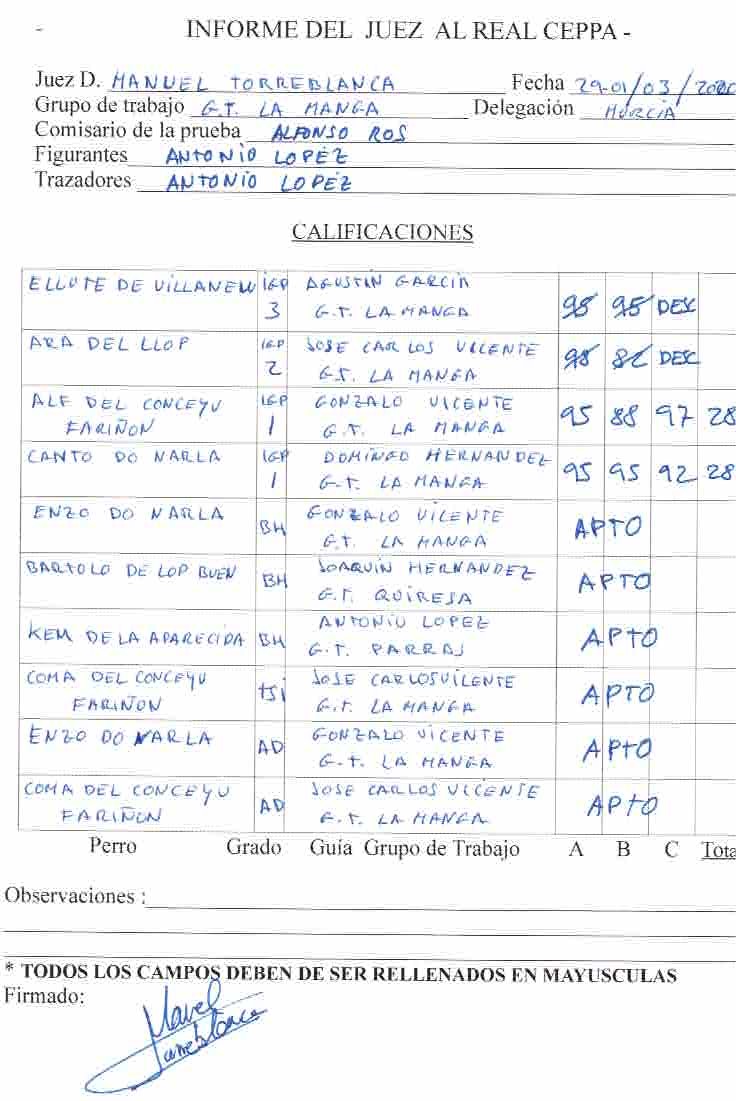 INFORME DEL JUEZ AL REAL CEPPA -
Juez D. MANUEL TORREBLANCA Fecha 29-01/03/2020
Grupo de trabajo G.T. LA MANGA Delegación MURCIA
Comisario de la prueba ALFONSO ROS
Figurantes ANTONIO LOPEZ
Trazadores ANTONIO LOPEZ
CALIFICACIONES
ELLUTE DE VILLANEW IGP AGUSTIN GARCIA
3 G.T. LA MANGA 98 95 DESC
ARA DEL LLOP IGP JOSE CARLOS VICENTE
2 G.T. LA MANGA 98 82 DESC
ALF DEL CONCEYU IGP GONZALO VICENTE
FARIÑON 1 G.T. LA MANGA 95 88 97 28
CANTO DO NARLA IGP DOMINGO HERNANDEZ
1 G.T. LA MANGA 95 95 92 28
ENZO DO NARLA BH GONZALO VICENTE APTO
G.T. LA MANGA
BARTOLO DE LOP BUEN BH JOAQUIN HERNANDEZ APTO
G.T. QUIRESA
KEM DE LA APARECIDA BH ANTONIO LOPEZ APTO
G.T. PARRAS
COMA DEL CONCEYU tSi JOSE CARLOS VICENTE APTO
FARIÑON G.T. LA MANGA
ENZO DO NARLA AD GONZALO VICENTE APTO
G.T. LA MANGA
COMA DEL CONCEYU AD JOSE CARLOS VICENTE APTO
FARIÑON G.T. LA MANGA
Perro Grado Guía Grupo de Trabajo A B C Tota
Observaciones :
* TODOS LOS CAMPOS DEBEN DE SER RELLENADOS EN MAYUSCULAS
Firmado:
Manuel
Torreblanca